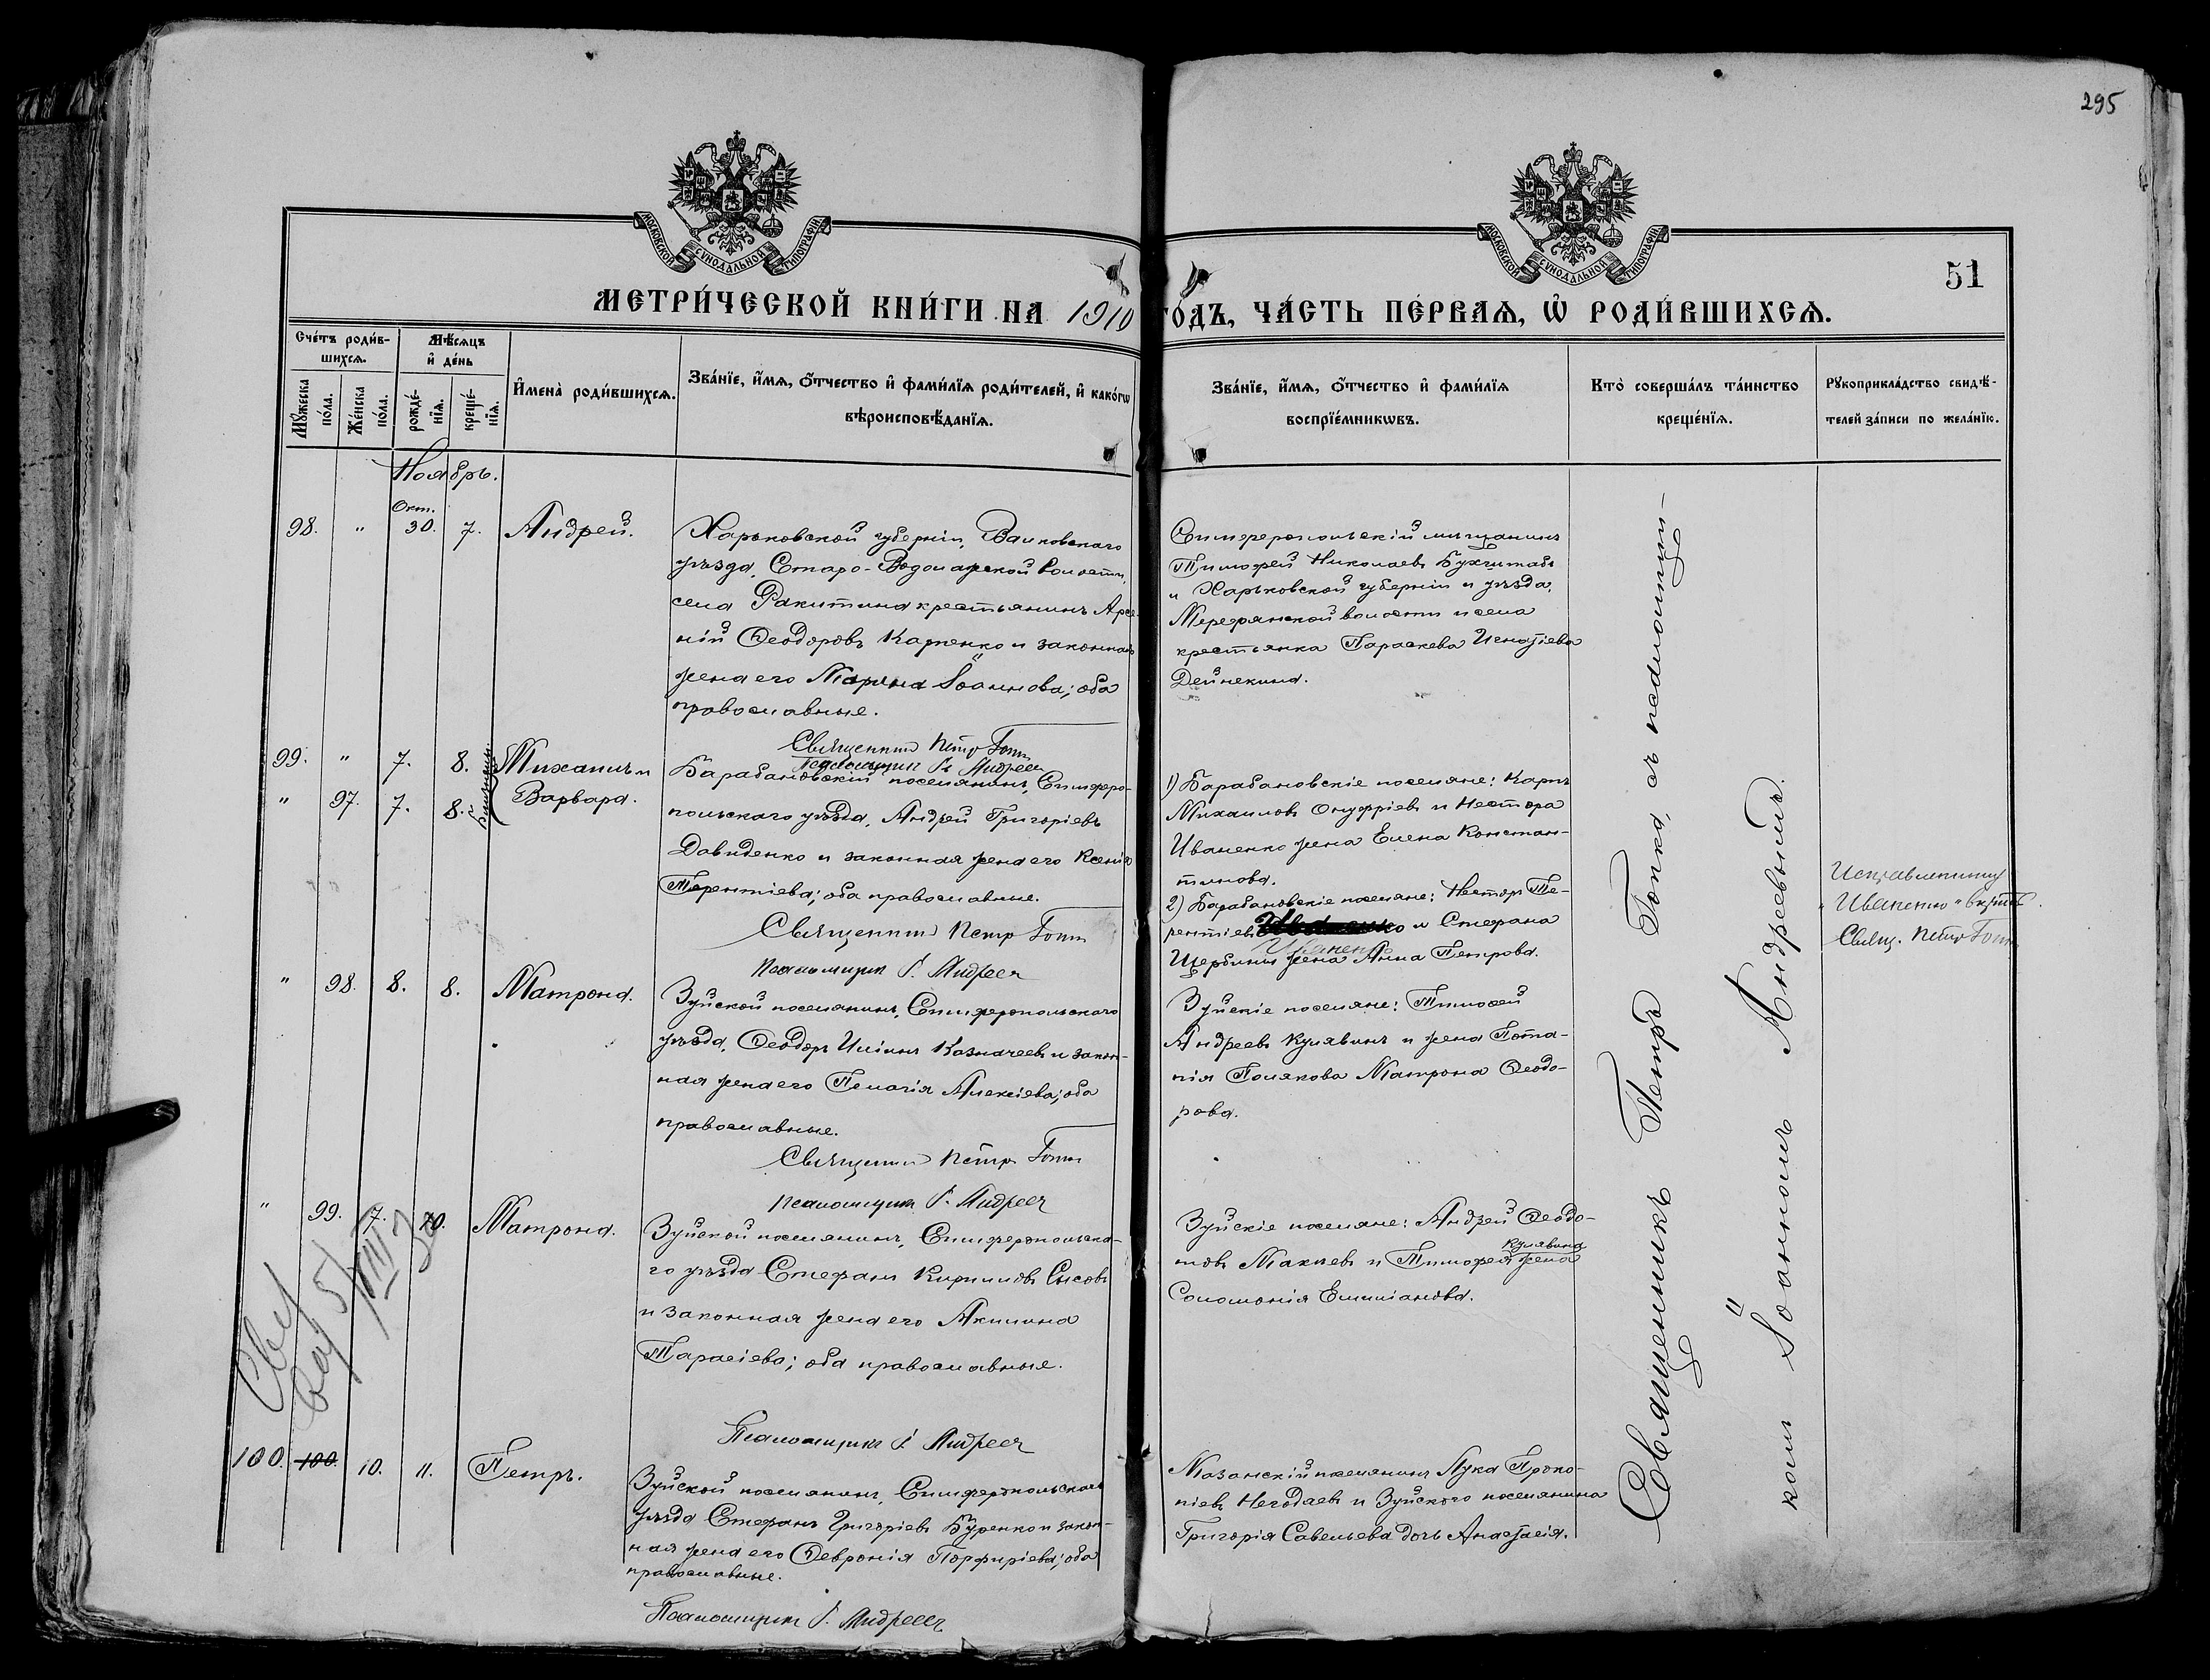 295
МОСКОВСКОЙ СѴНОДАЛЬНОЙ ТИПОГРАФІИ
МОСКОВСКОЙ СѴНОДАЛЬНОЙ ТИПОГРАФІИ
51
МЕТРИ́ЧЕСКОЙ КНИ́ГИ НА 1910 ГО́ДЪ, ЧА́СТЬ ПЕ́РВАѦ, Ѡ҆ РОДИ́ВШИХСѦ.
Сче́тъ роди́в-
шихсѧ.
Мꙋ́жеска по́ла.
Же́нска по́ла.
Мѣ́сѧцъ
и҆ де́нь
рожде́-
нїѧ.
креще́-
нїѧ.
И҆мена̀ роди́вшихсѧ.
Зва́нїе, и҆́мѧ, ѻ҆́тчество и҆ фами́лїѧ роди́телей, и҆ како́гѡ
вѣроисповѣ́данїѧ.
Зва́нїе, и҆́мѧ, ѻ҆́тчество и҆ фами́лїѧ
воспрїе́мникѡвъ.
Кто̀ соверша́лъ та́инство
креще́нїѧ.
Рꙋкоприкла́дство свидѣ́-
телей за́писи по жела́нїю.
Ноябрь.
98. " Окт. 30. 7. Андрей.
Харьковской губерніи, Валковскаго
уѣзда, Старо-Водолажской волости,
села Ракитина крестьянинъ Арсе-
ній Ѳеодоровъ Карпенко и законная
жена его Марина Іоаннова; оба
православные.
Священникъ Петръ Гопка
Псаломщикъ І. Андреевъ
Симферопольскій мѣщанинъ
Тимофей Николаевъ
и Харьковской губерніи и уѣзда,
Мерефянской волости и села
крестьянка Параскева Игнатіева
Дейнекина.
99. " 7. 8. Михаилъ и
" 97. 7. 8. Варвара.
близнецы
Барабановскій поселянинъ, Симферо-
польскаго уѣзда, Андрей Григоріевъ
Давиденко и законная жена его Ксенія
Терентіева; оба православные.
Священникъ Петръ Гопка
Псаломщикъ І. Андреевъ
1) Барабановскіе поселяне: Карпъ
Михаиловъ Онуфріевъ и Нестора
Иваненко жена Елена Констан-
тинова.
2) Барабановскіе поселяне: Несторъ Те-
рентіевъ и Стефана
Иваненко
Щербины жена Анна Петрова.
Исправленному
"Иваненко" вѣрить.
Свящ. Петръ Гопка
" 98. 8. 8. Матрона.
Зуйской поселянинъ, Симферопольскаго
уѣзда, Ѳеодоръ Иліинъ Казначеевъ и закон-
ная жена его Пелагія Алексіева; оба
православные.
Священникъ Петръ Гопка
Псаломщикъ І. Андреевъ
Зуйскіе поселяне: Тимофей
Андреевъ Кулявинъ и жена Пота-
пія Полякова Матрона Ѳеодо-
рова.
" 99. 7. 10. Матрона.
Зуйской поселянинъ, Симферопольска-
го уѣзда Стефанъ Кирилловъ Сысовъ
и законная жена его Акилина
Тарасіева; оба православные.
Псаломщикъ І. Андреевъ
Зуйскіе поселяне: Андрей Ѳеодо-
товъ Макѣевъ и Тимофея Кулявина жена
Соломонія Емиліанова.
100. 100. 10. 11. Петръ.
Зуйской поселянинъ, Симферопольскаго
уѣзда Стефанъ Григоріевъ Буренко и закон-
ная жена его Ѳевронія Порфиріева; оба
православные.
Псаломщикъ І. Андреевъ
Мазанскій поселянинъ Лука Проко-
піевъ Негодаевъ и Зуйского поселянина
Григорія Савельева дочь Анастасія.
Священникъ Петръ Гопка, съ псаломщи-
комъ Іоанномъ Андреевымъ.